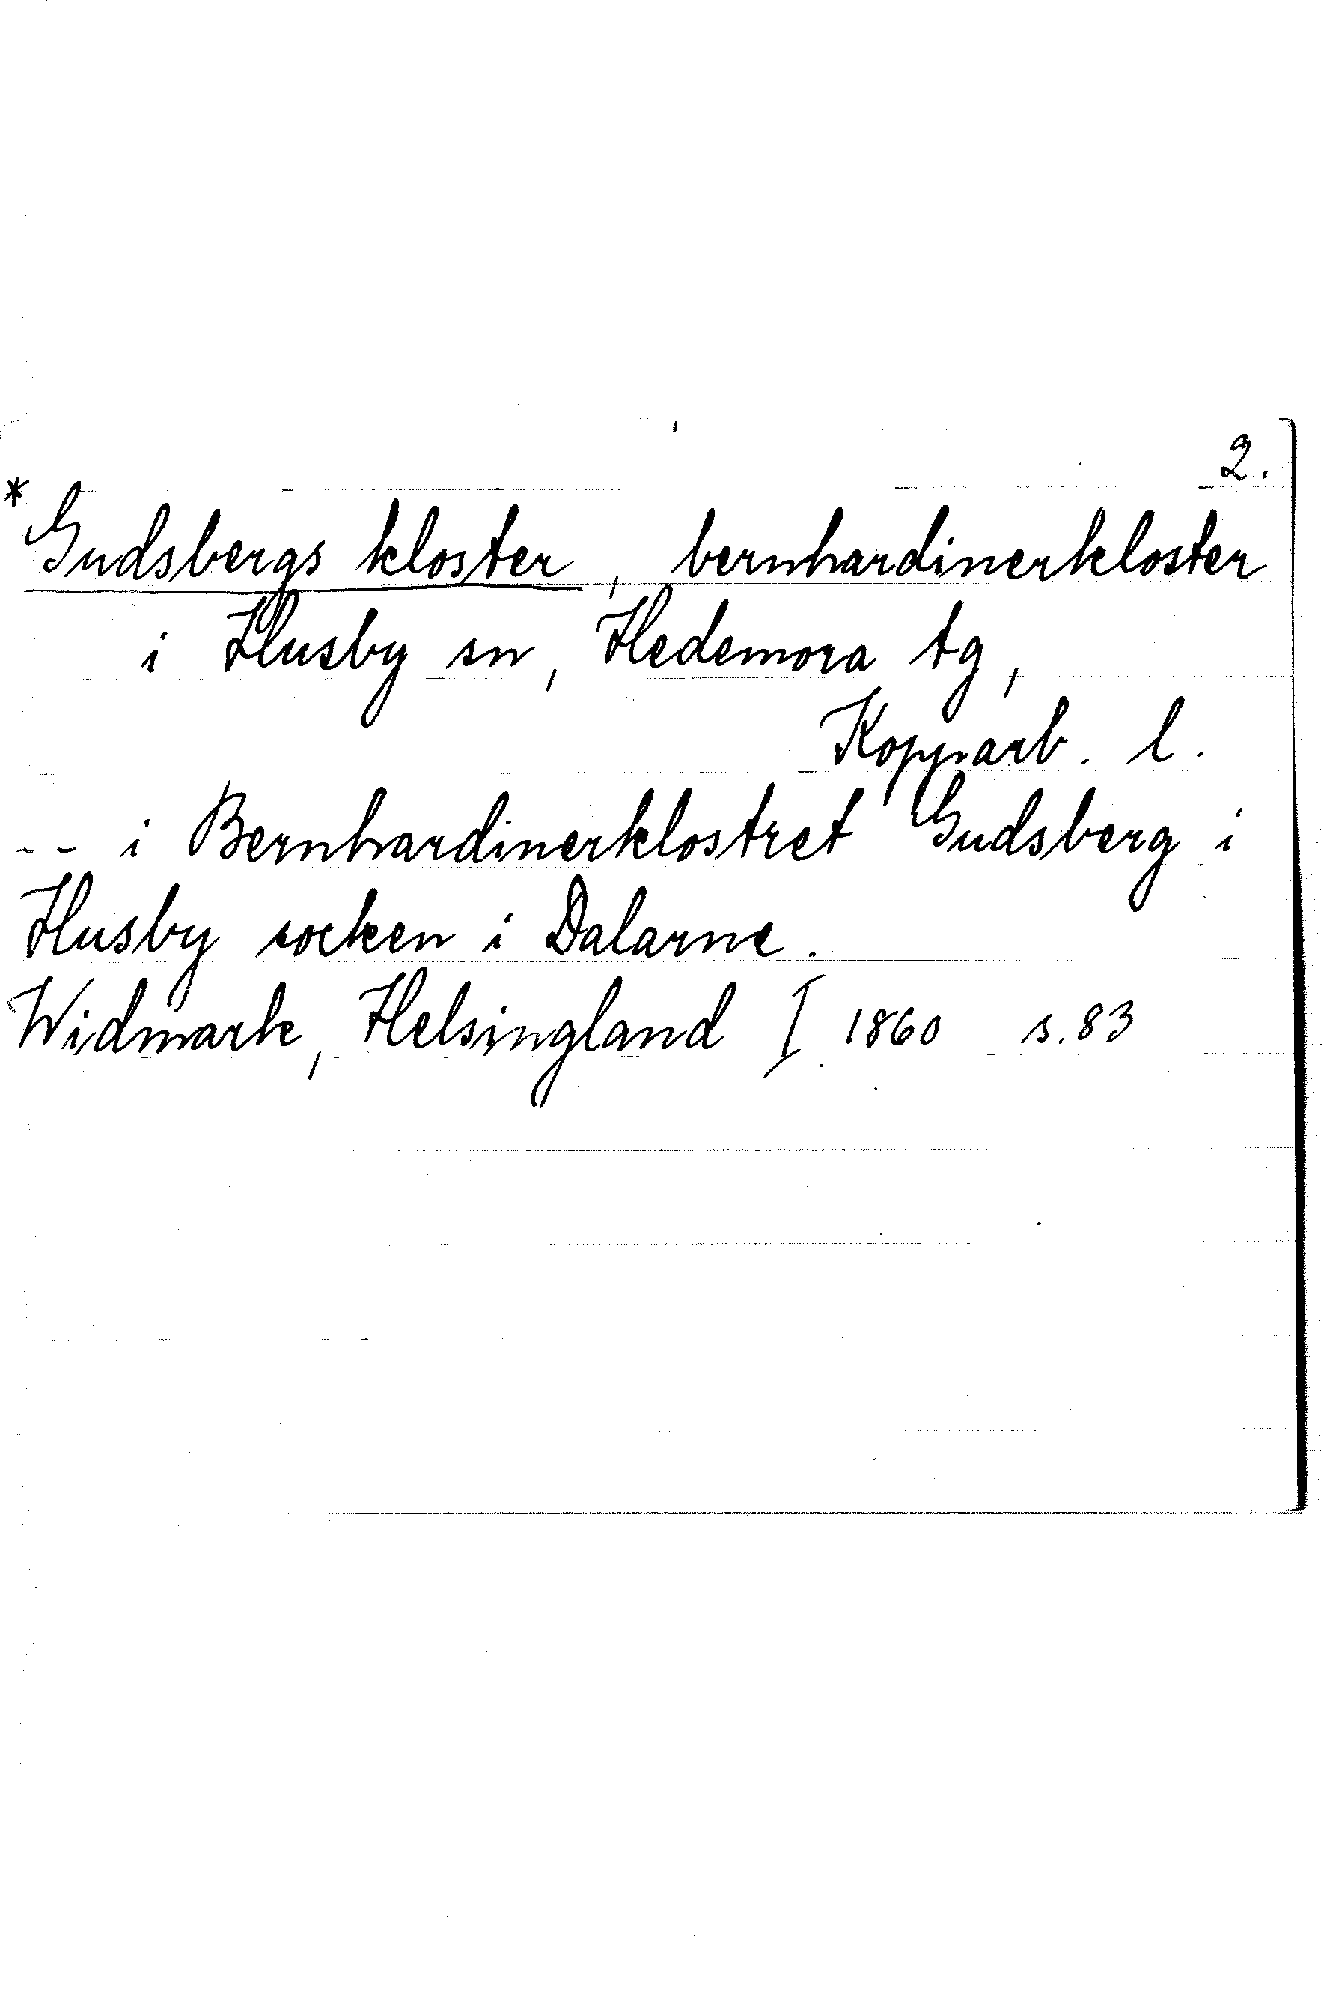 2.
*Gudsbergs kloster, bernhardinerkloster
i Husby sn, Hedemora tg,
Kopparb. l.
-- i Bernhardinerklostret Gudsberg i
Husby socken i Dalarne.
Widmark, Helsingland I 1860 s. 83